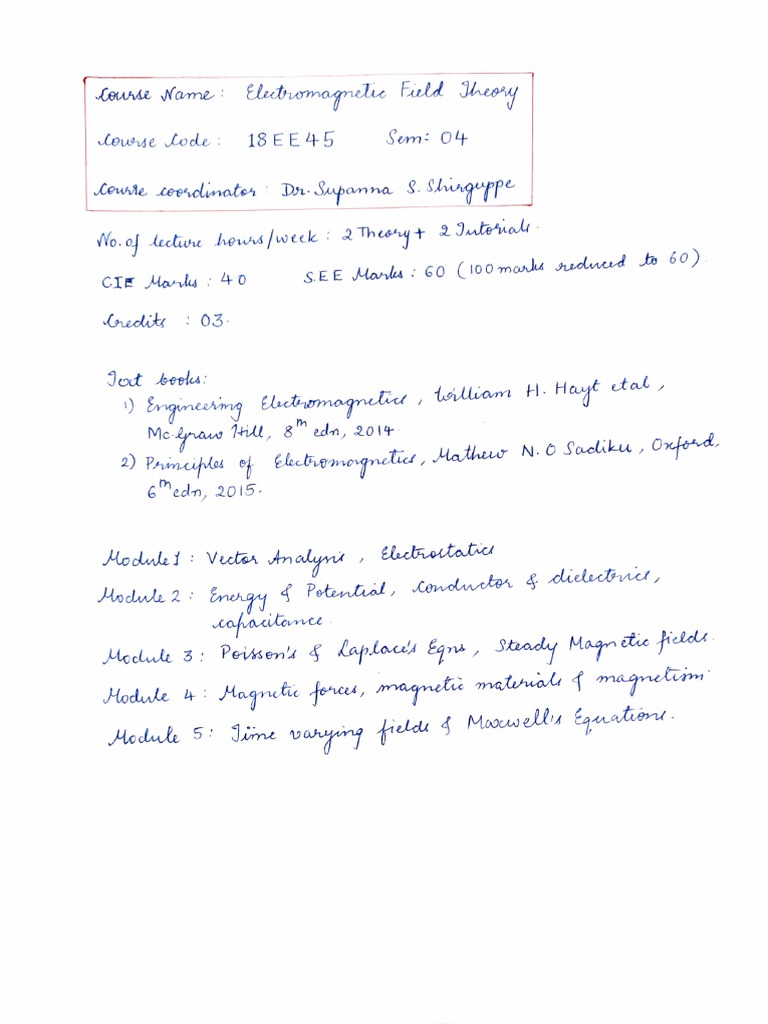 Course Name: Electromagnetic Field Theory
Course Code: 18EE45 Sem: 04
Course coordinator: Dr. Supanna S. Shirguppe
No. of lecture hours/week: 2 Theory + 2 Tutorials.
CIE Marks: 40 SEE Marks: 60 (100 marks reduced to 60).
Credits : 03.
Text books:
1) Engineering Electromagnetics, William H. Hayt etal,
Mc-Graw Hill, 8th edn, 2014.
2) Principles of Electromagnetics, Mathew N.O Sadiku, Oxford,
6th edn, 2015.
Module 1: Vector Analysis, Electrostatics
Module 2: Energy & Potential, Conductor & dielectrics,
capacitance.
Module 3: Poisson's & Laplace's Eqns, Steady Magnetic fields.
Module 4: Magnetic forces, magnetic materials & magnetism.
Module 5: Time varying fields & Maxwell's Equations.